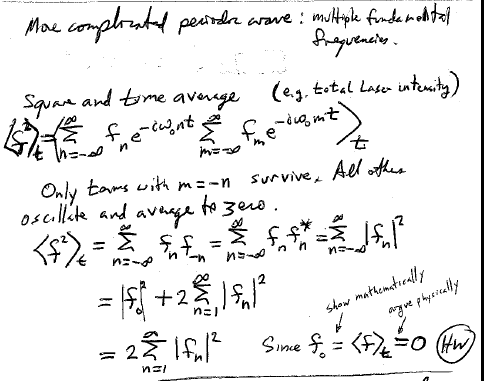 More complicated periodic wave : multiple fundamental
frequencies.
Square and time average (e.g. total Laser intensity)
⟨f²⟩_t = ⟨∑_{n=-∞}^{∞} f_n e^{-iω₀nt} ∑_{m=-∞}^{∞} f_m e^{-iω₀mt}⟩_t
Only terms with m = -n survive. All others
oscillate and average to zero.
⟨f²⟩_t = ∑_{n=-∞}^{∞} f_n f_{-n} = ∑_{n=-∞}^{∞} f_n f_n^* = ∑_{n=-∞}^{∞} |f_n|²
= |f₀|² + 2∑_{n=1}^{∞} |f_n|²
show mathematically
argue physically
= 2∑_{n=1}^{∞} |f_n|² Since f₀ = ⟨f⟩_t = 0 (HW)